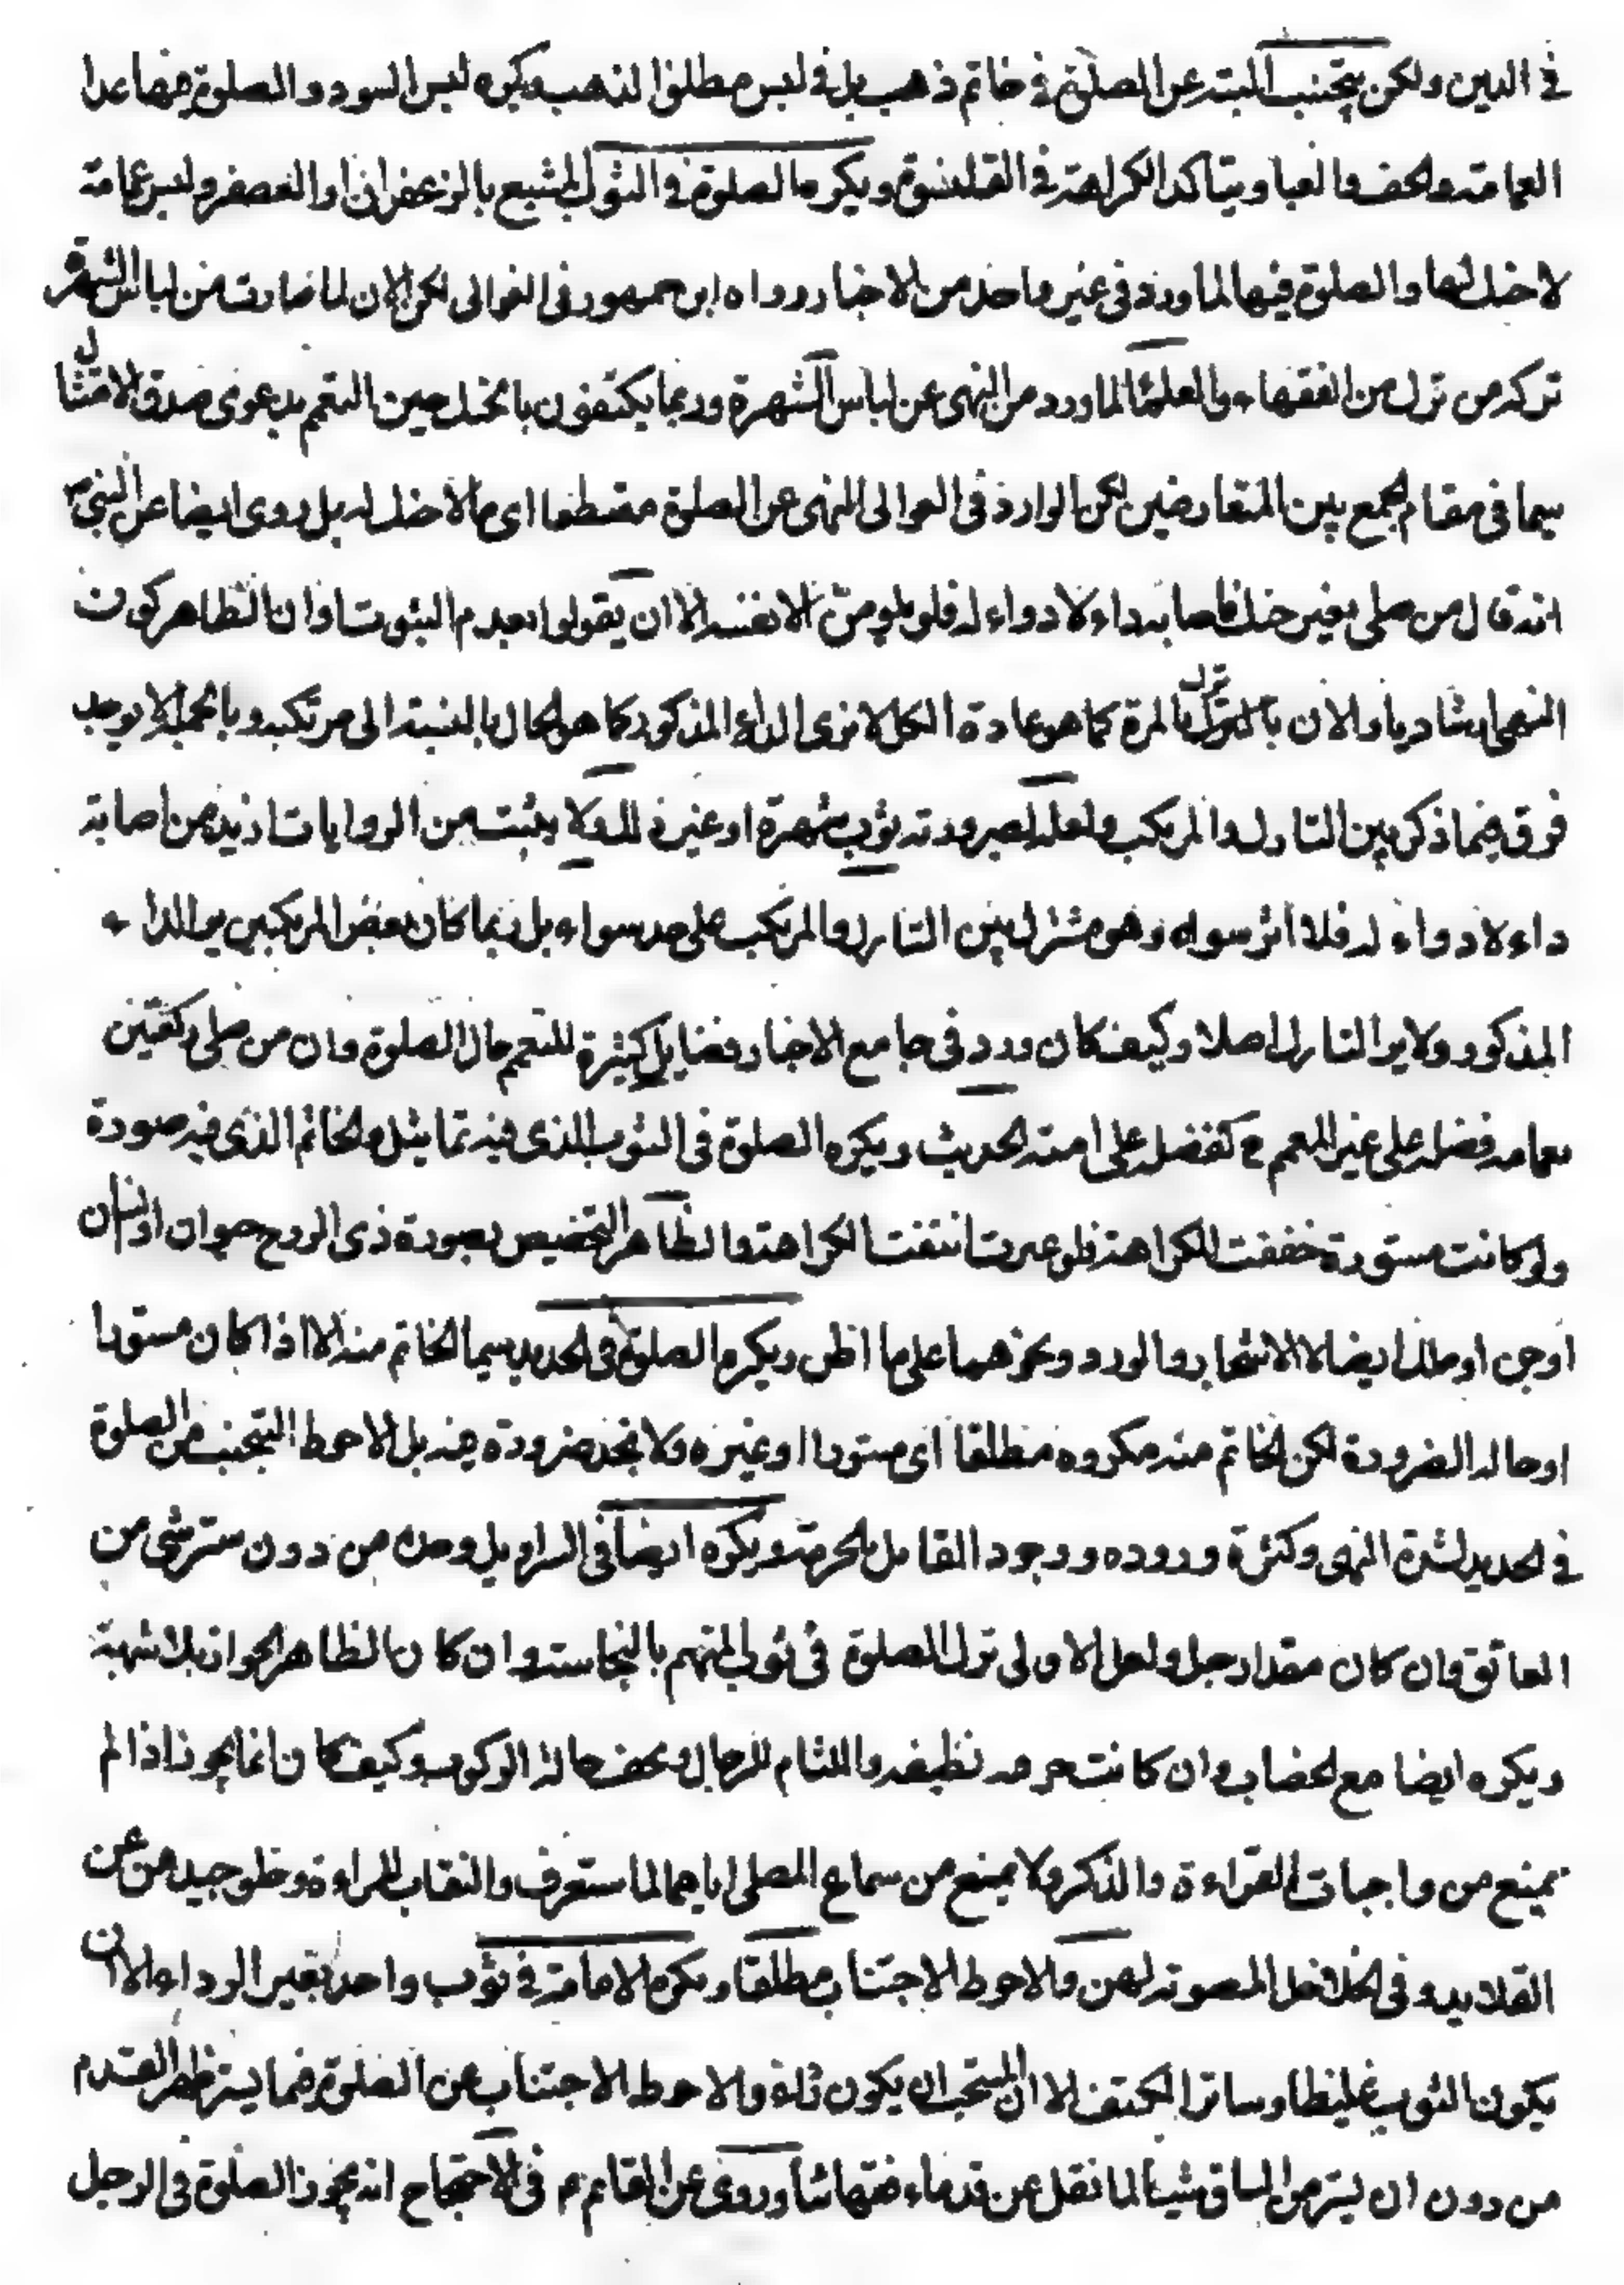 في الدين ولكن يتجنب البتة عن الصلوة في خاتم ذهب بل في لبس مطلق الذهب ويكره لبس السود والصلوة فيها عدا
العمامة والخف والعبا ويتاكد الكراهة في القلنسوة ويكره الصلوة في الثوب المشبع بالزعفران او العصفر ولبس عمامة
لا حنك لها والصلوة فيها لما ورد في غير واحد من الاخبار ورواه ابن جمهور في الغوالي لكن الان لما صارت من لباس الشهرة
تركه من ترك من الفقهاء والعلماء لما ورد من النهي عن لباس الشهرة وربما يكتفون بالتحنك حين التعمم بدعوى صدق الامتثال
سيما في مقام الجمع بين المتعارضين لكن الوارد في الغوالي النهي عن الصلوة مقتطعا اي ما لا حنك له بل روى ايضا عن النبي ص
انه قال من صلى بغير حنك فاصابه داء لا دواء له فلا يلومن الا نفسه الا ان يقولوا بعدم الثبوت او ان الظاهر كون
النهي ارشاديا والان بالترك بالمرة كما هو عادة الكل لا نرى الداء المذكور كما هو الحال بالنسبة الى مرتكبه وبالجملة لا يوجد
فرق فيما ذكر بين التارك والمرتكب ولعله لصيرورته ثوب شهرة او غير ذلك ولا يثبت من الروايات ازيد من اصابة
داء لا دواء له فلا اثر سواه وهو مشترك بين التارك والمرتكب على حد سواء بل ربما كان بعض المرتكبين يرى الداء
المذكور ولا يرى التارك اصلا وكيف كان ورد في جامع الاخبار فضايل كثيرة للتعمم حال الصلوة وان من صلى ركعتين
بعمامة فضله على غير المعمم كفضله على امته الحديث ويكره الصلوة في الثوب الذي فيه تماثيل والخاتم الذي فيه صورة
ولو كانت مستورة خففت الكراهة فلو غيرت انتفت الكراهة والظاهر التخصيص بصورة ذي الروح حيوان او انسان
او جن او ملك ايضا لا الاشجار والورد ونحوهما على ما اظن ويكره الصلوة في الحديد سيما الخاتم منه الا اذا كان مستورا
او حالة الضرورة لكن الخاتم منه مكروه مطلقا اي مستورا او غيره ولا نجد ضرورة فيه بل الاحوط التجنب من الصلوة
في الحديد لشدة النهي وكثرة وروده ووجود القائل بالحرمة ويكره ايضا في السراويل وحده من دون ستر شيء من
العاتق وان كان مقدار حبل ولعل الاولى ترك الصلوة في ثوب المتهم بالنجاسة وان كان الظاهر الجواز بلا شبهة
ويكره ايضا مع الخضاب وان كانت خرقته نظيفة واللثام للرجال ويخف حالة الركوب وكيف كان انما يجوز اذا لم
يمنع من واجبات القراءة والذكر ولا يمنع من سماع المصلي اياهما لما ستعرف والنقاب للمراءة وخلو جيدهن عن
القلايد وفي الخلاخل المصوتة لهن والاحوط الاجتناب مطلقا ويكره الامامة في ثوب واحد بغير الرداء الا ان
يكون الثوب غليظا وساترا للكتف الا ان المستحب ان يكون ثلثة والاحوط الاجتناب عن الصلوة فيما يستر ظهر القدم
من دون ان يستر من الساق شيئا لما نقل عن قدماء فقهائنا وروى عن القائم ع في الاحتجاج انه يجوز الصلوة في الرجل